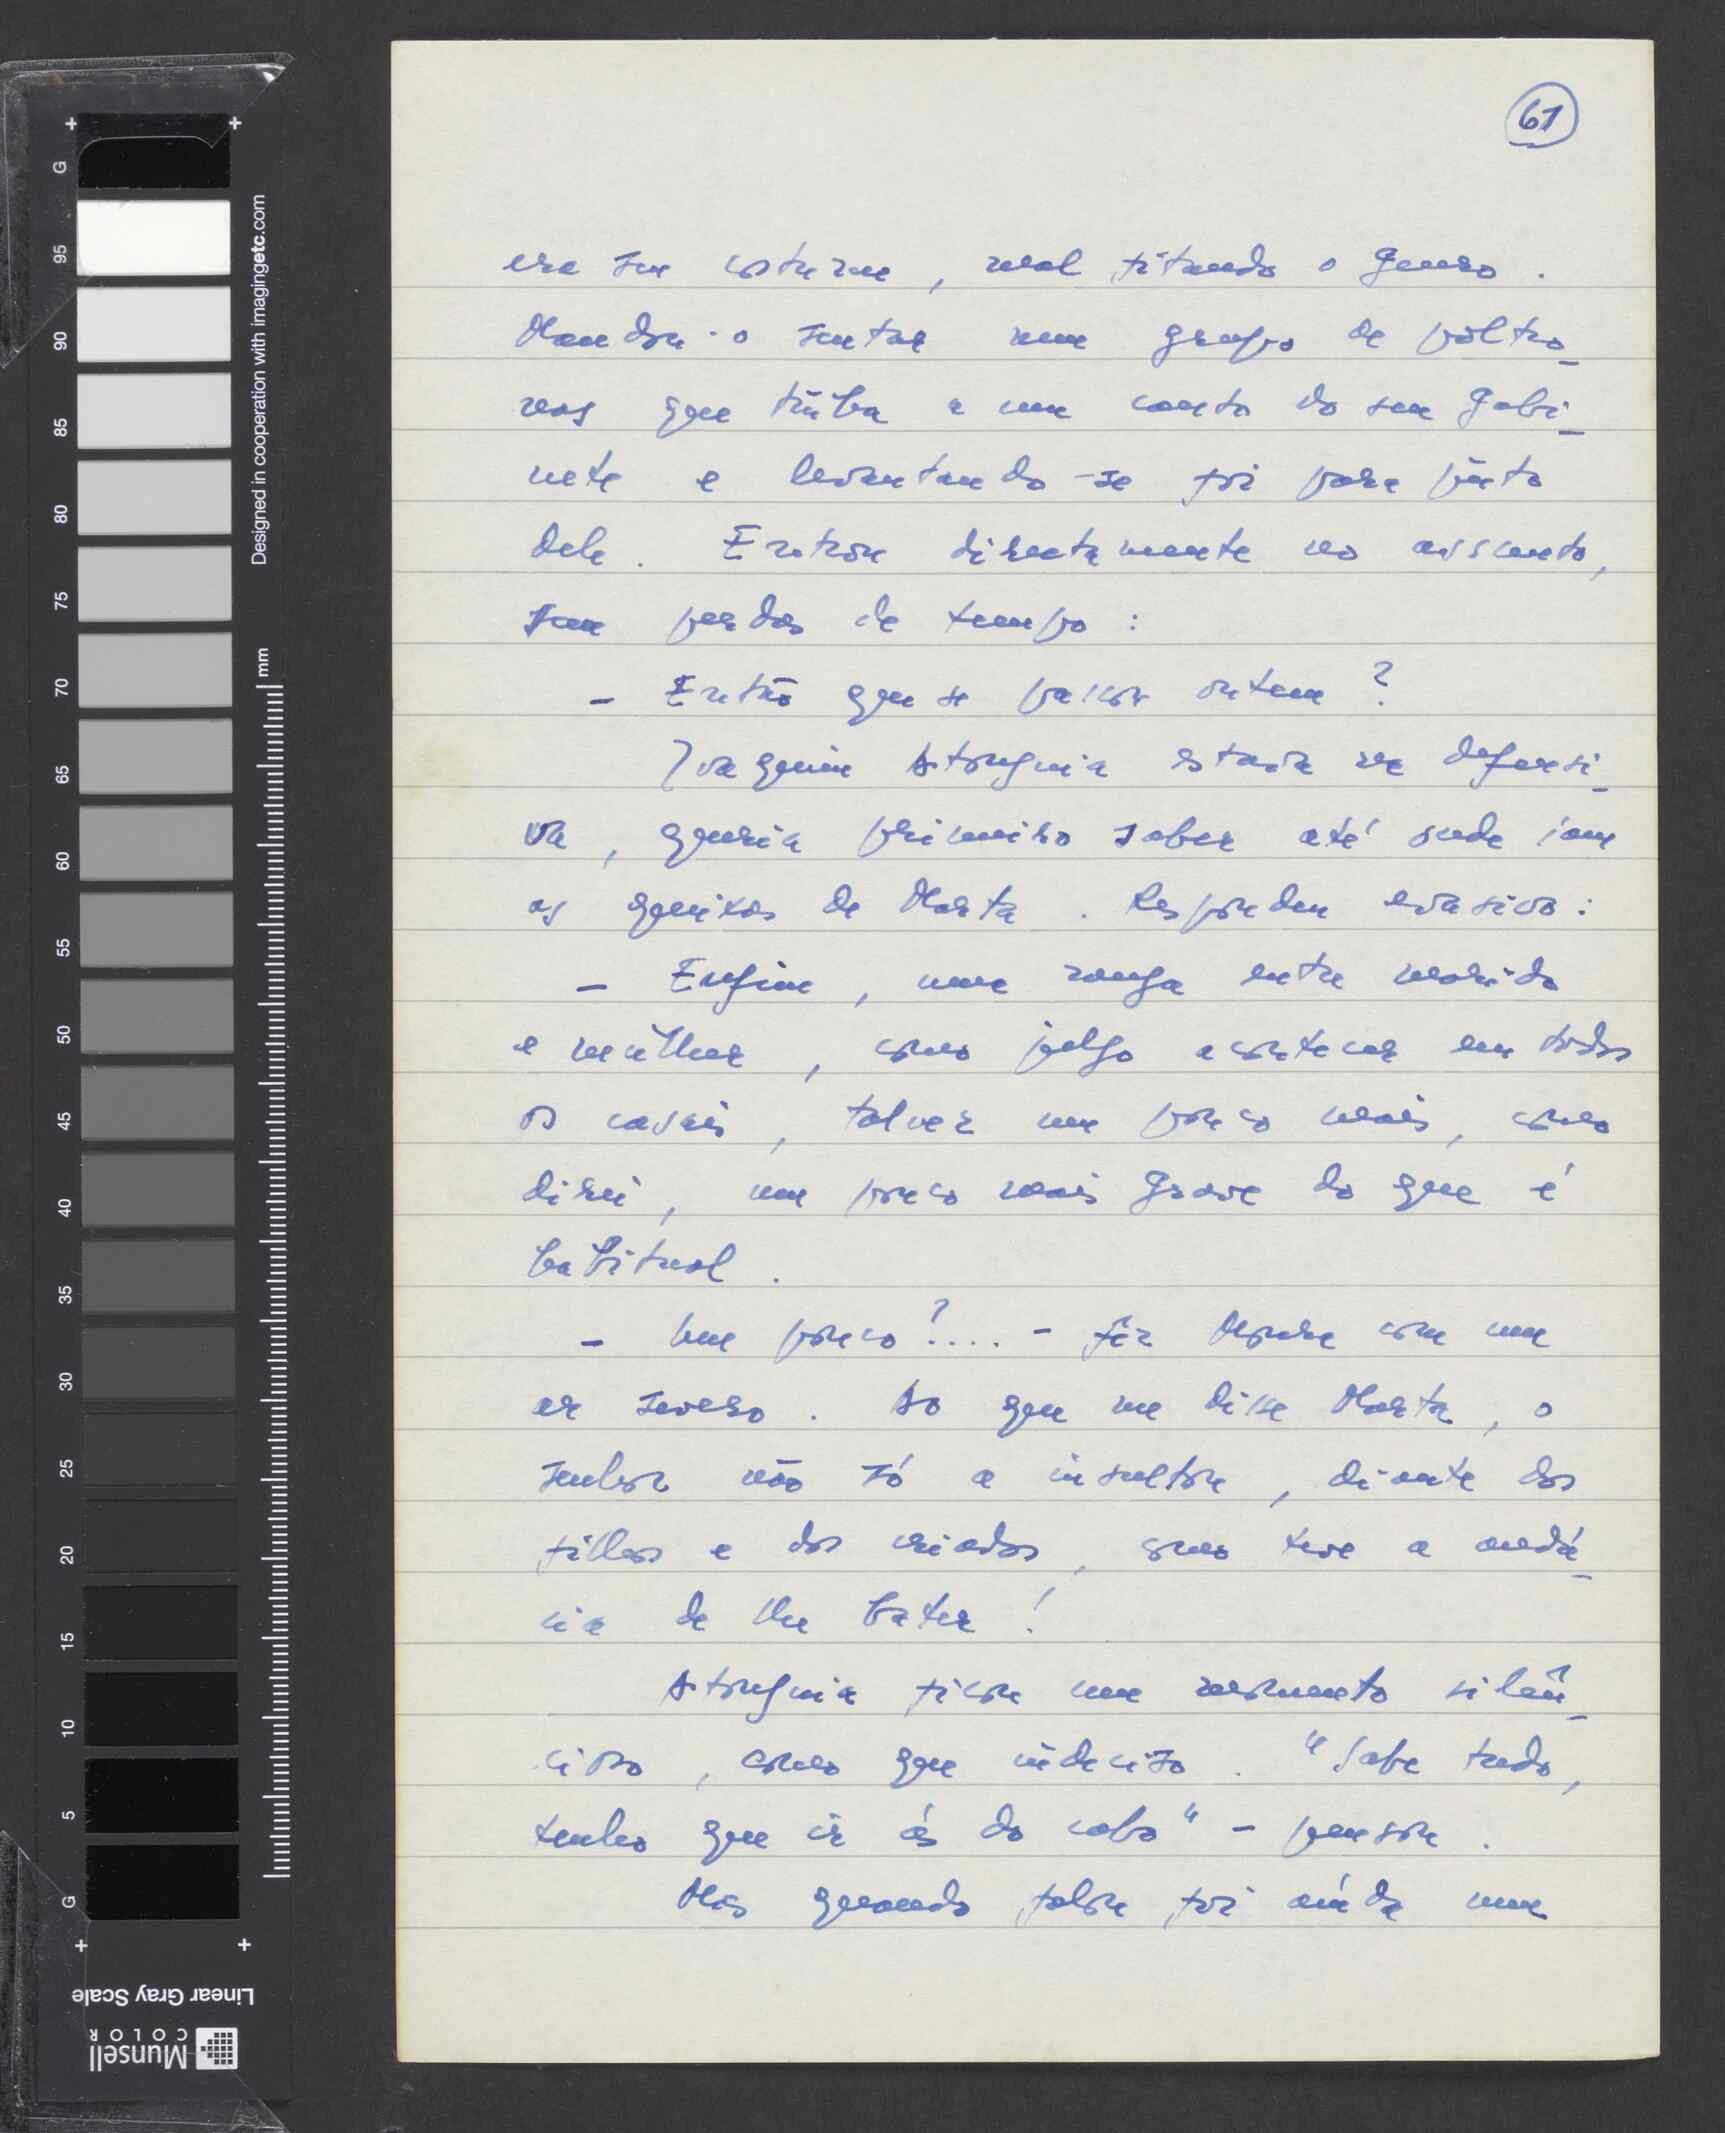 61
era seu costume, mal fitando o genro.
Mandou-o sentar num grupo de poltro-
nas que tinha a um canto do seu gabi-
nete e levantando-se foi para junto
dele. Entrou directamente no assunto,
sem perdas de tempo:
- Então que se passou ontem?
Joaquim Astorguia estava na defensi-
va, queria primeiro saber até onde iam
as queixas de Marta. Respondeu evasivo:
- Enfim, uma zanga entre marido
e mulher, como julgo acontecer em todos
os casais, talvez um pouco mais, como
direi, um pouco mais grave do que é
habitual.
- Um pouco?.... - fêz Moura com um
ar severo. Ao que me disse Marta, o
senhor não só a insultou, diante dos
filhos e dos criados, como teve a audá-
cia de lhe bater!
Astorguia ficou um momento silên-
cioso, como que indeciso. "Sabe tudo,
tenho que ir ás do cabo" - pensou.
Mas quando falou foi ainda num
Designed in cooperation with imagingetc.com
mm
G 95 90 85 80 75 70 65 60 55 50 45 40 35 30 25 20 15 10 5 G
Linear Gray Scale
Munsell
COLOR